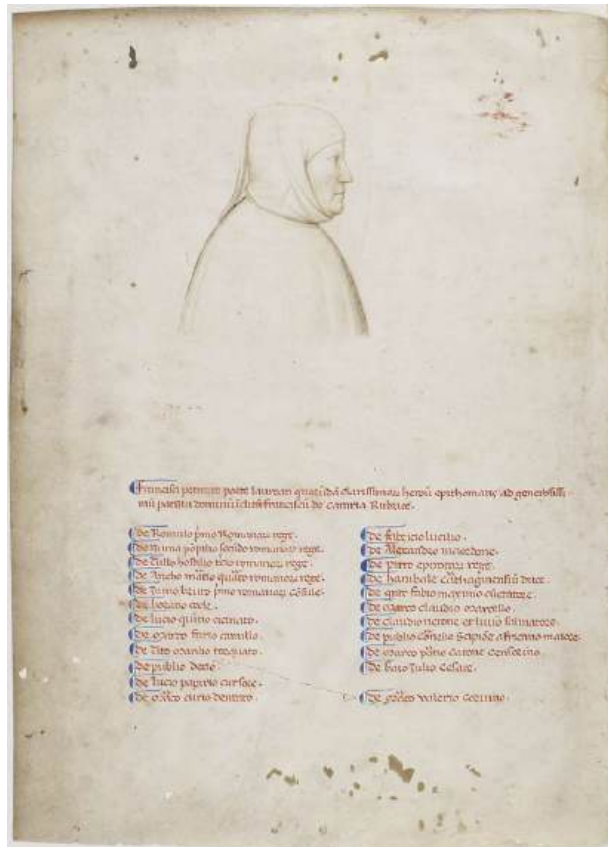 Francisci petrarce poete laureati quorūdā clarissimor heroū epithomatis ad generosissi
mū patauii dominū Franciscū de Carraria Rubrice.
de Romulo pmo Romanor rege.
de numa pōpilio secūdo romanor rege.
de tullo hostilio tcio romanor rege.
de Ancho martio quarto romanor rege.
de Junio bruto pmo romanor cōsule.
de horatio cocle.
de lucio quītio cicinato.
de marco furio camillo.
de Tito manlio torquato.
de publio decio.
de Lucio papirio cursore.
de marco curio dentato.
de fabricio lucinio.
de Alexandro macedone.
de pirro epyrotar rege.
de hanibale carthaginensiū duce.
de quīto fabio maximo cūctatore.
de marco claudio marcello.
de claudio nerone et liuio salinatore.
de publio cornelio scipiōe africano maiore.
de marco portio catone censorino.
de Gaio Iulio cesare.
de marco valerio coruino.